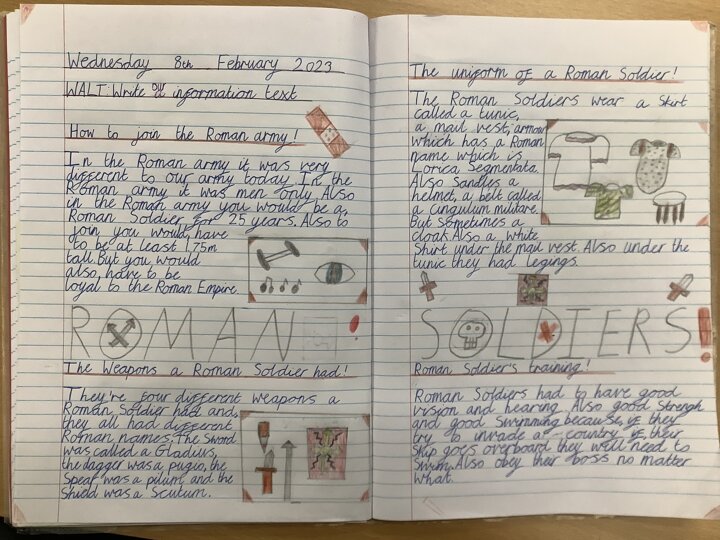 Wednesday 8th February 2023
WALT: Write our information text
How to join the Roman army!
In the Roman army it was very
different to our army today. In the
Roman army it was men only. Also
in the Roman army you would be a
Roman Soldier for 25 years. Also to
join you would have
to be at least 1.75m
tall. But you would
also, have to be
loyal to the Roman Empire
ROMAN
The Weapons a Roman Soldier had!
They're four different weapons a
Roman Soldier had and
they all had different
Roman names. The Sword
was called a Gladius,
the dagger was a pugio, the
Spear was a pilum and the
Shield was a Scutum.
The uniform of a Roman Soldier!
The Roman Soldiers wear a Skirt
called a tunic,
a mail vest, armour
which has a Roman
name which is
Lorica Segmentata.
Also Sandles a
helmet, a belt called
a cingulum militare.
But sometimes a
cloak. Also a white
Shirt under the mail vest. Also under the
tunic they had legings.
SOLDIERS!
Roman Soldier's training!
Roman Soldiers had to have good
vision and hearing. Also good Strength
and good Swimming because, if they
try to invade a country if their
Ship goes overboard they will need to
Swim. Also obey their boss no matter
what.